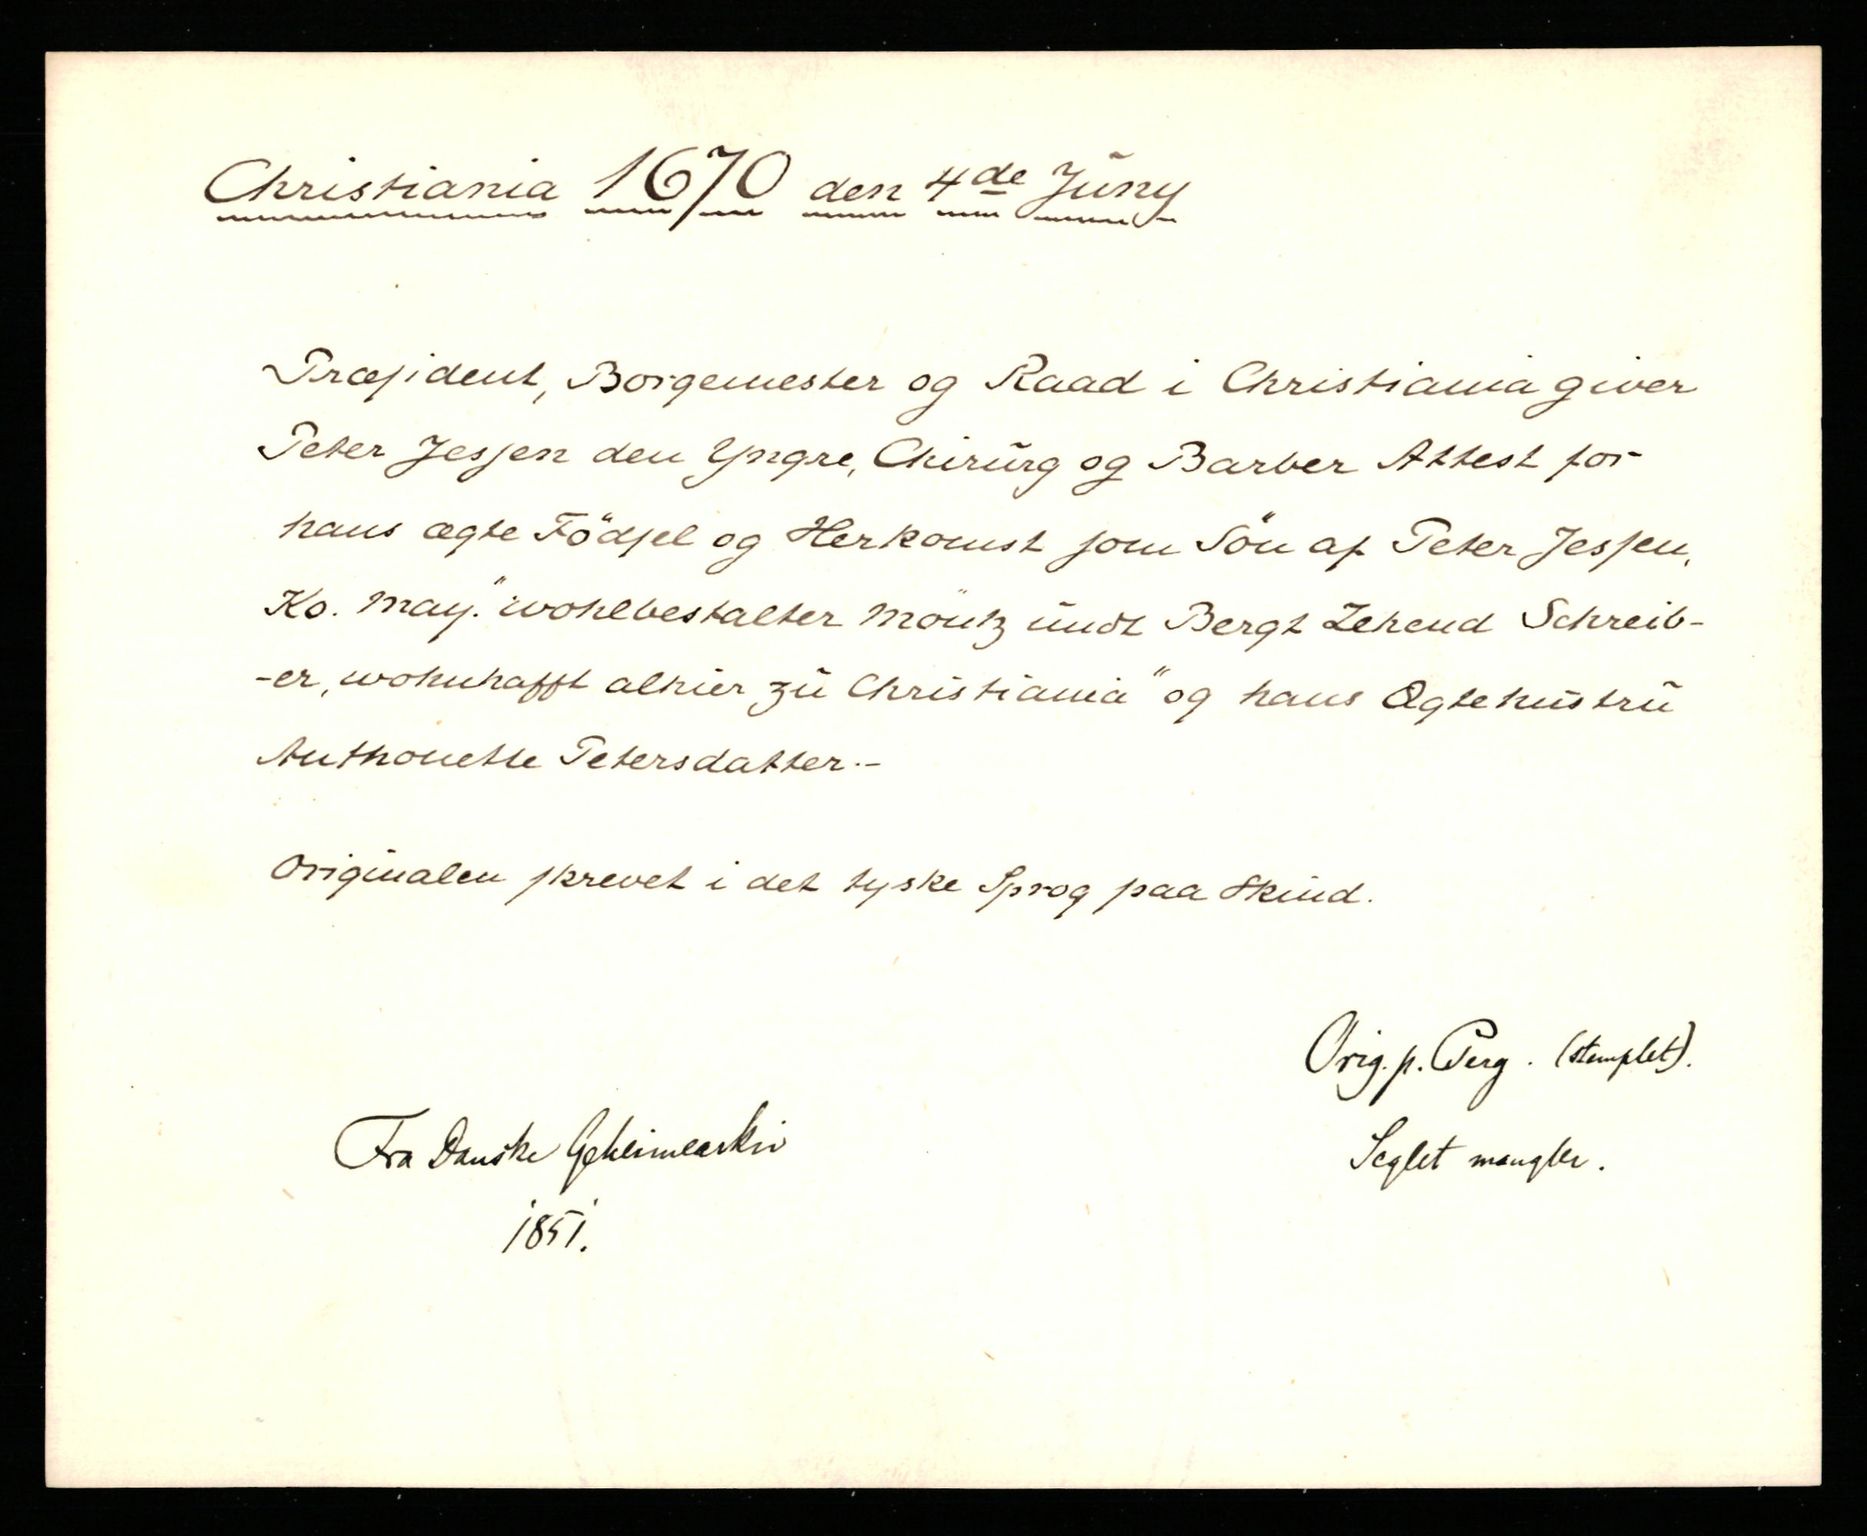 Christiania 1670 den 4de Jŭny
Præsident, Borgemester og Raad i Christiania giver
Peter Jessen den Yngre, Chirŭrg og Barber Attest for
hans ægte Födsel og Herkomst som Sön af Peter Jessen,
Ko. May. "wohlbestalter Möntz ŭndt Bergt Zehend Schreib-
-er, wohnhafft alhier zŭ Christiania" og hans Ægtehŭstrŭ
Anthonette Petersdatter.-
Originalen skrevet i det tyske Sprog paa Skind.
Orig. p. Perg. (stemplet).
Fra Danske Geheimearkiv
Seglet mangler.
1851.